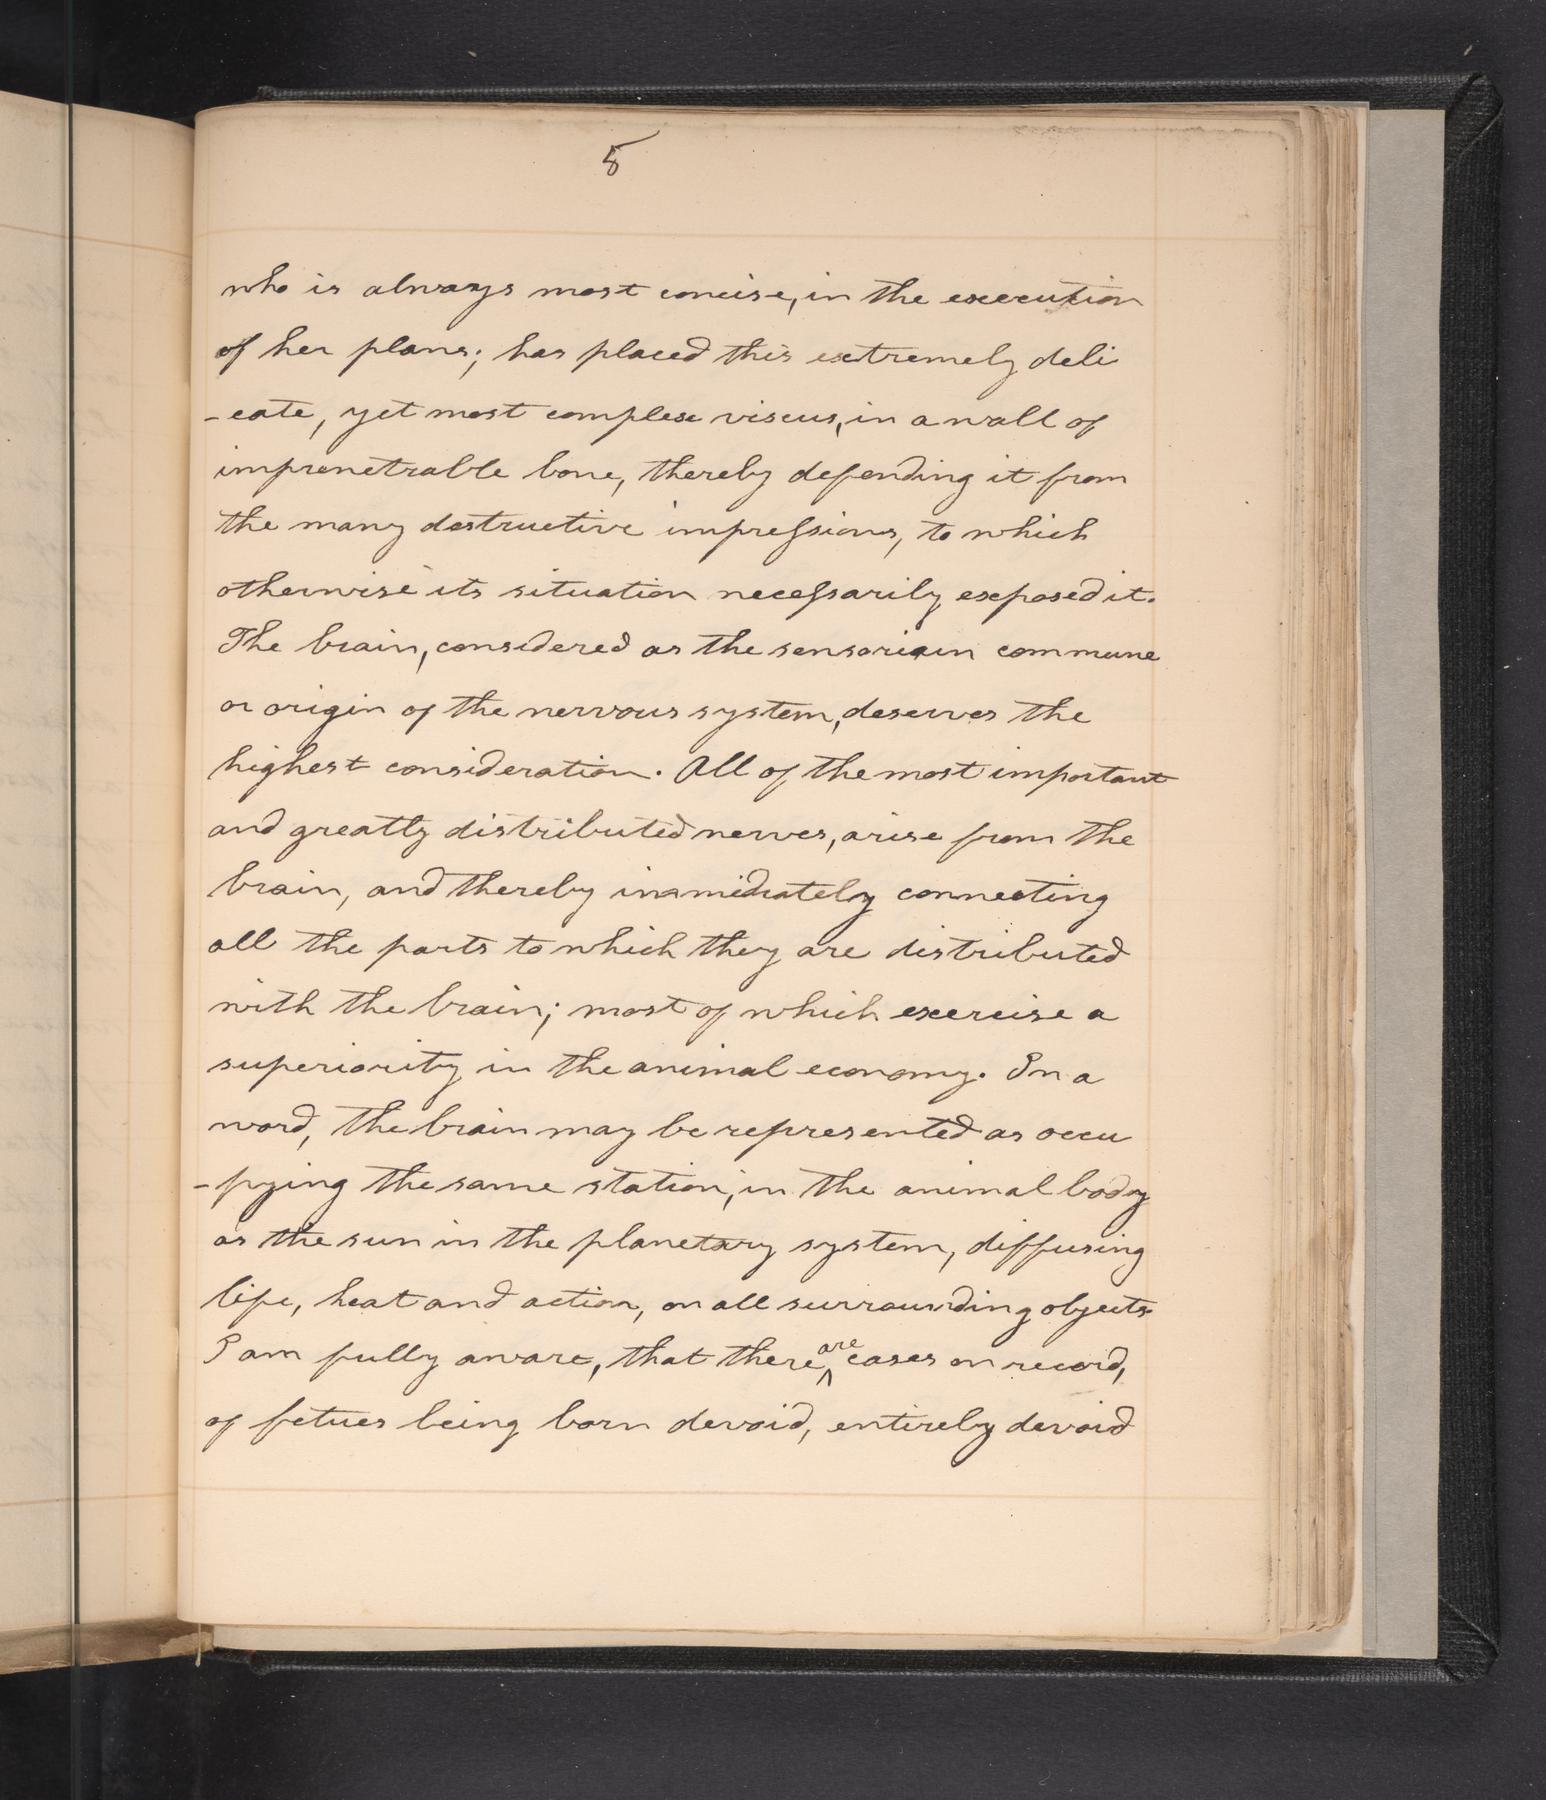 5
who is always most concise, in the execution
of her plans; has placed this extremely deli
-cate, yet most complex viscus, in a wall of
impenetrable bone, thereby defending it from
the many destructive impressions, to which
otherwise its situation necessarily exposed it.
The brain, considered as the sensorium commune
or origin of the nervous system, deserves the
highest consideration. All of the most important
and greatly distributed nerves, arise from the
brain, and thereby immediately connecting
all the parts to which they are distributed
with the brain; most of which exercise a
superiority in the animal economy. In a
word, the brain may be represented as occu
-pying the same station, in the animal body
as the sun in the planetary system, diffusing
life, heat and action, on all surrounding objects.
I am fully aware, that there are cases on record,
of fetues being born devoid, entirely devoid